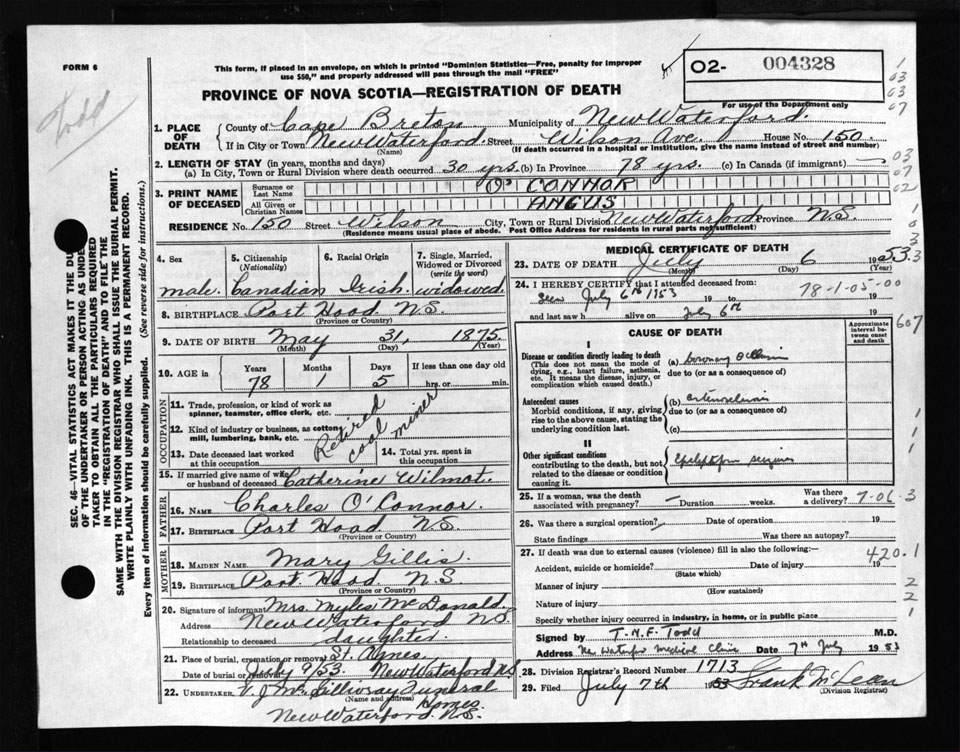 FORM 6
This form, if placed in an envelope, on which is printed "Dominion Statistics—Free, penalty for improper
use $50," and properly addressed will pass through the mail "FREE"
O2- 004328
For use of the Department only
PROVINCE OF NOVA SCOTIA—REGISTRATION OF DEATH
Todd
1. PLACE OF DEATH
County of Cape Breton Municipality of New Waterford.
If in City or Town New Waterford. Street Wilson Ave. House No. 150.
(Name) (If death occurred in a hospital or institution, give the name instead of street and number)
2. LENGTH OF STAY (in years, months and days)
(a) In City, Town or Rural Division where death occurred 30 yrs. (b) In Province 78 yrs. (c) In Canada (if immigrant) —
3. PRINT NAME OF DECEASED
Surname or Last Name O'CONNOR
All Given or Christian Names ANGUS
RESIDENCE No. 150 Street Wilson City, Town or Rural Division New Waterford Province N.S.
(Residence means usual place of abode. Post Office Address for residents in rural parts not sufficient)
4. Sex male.
5. Citizenship (Nationality) Canadian
6. Racial Origin Irish
7. Single, Married, Widowed or Divorced (write the word) widowed.
8. BIRTHPLACE Port Hood N.S.
(Province or Country)
9. DATE OF BIRTH May 31, 1875.
(Month) (Day) (Year)
10. AGE in Years Months Days If less than one day old
78 1 5 hrs. or min.
OCCUPATION
11. Trade, profession, or kind of work as
spinner, teamster, office clerk, etc.
12. Kind of industry or business, as cotton
mill, lumbering, bank, etc.
Retired coal miner
13. Date deceased last worked
at this occupation
14. Total yrs. spent in
this occupation
15. If married give name of wife
or husband of deceased Catherine Wilmot.
FATHER
16. NAME Charles O'Connor.
17. BIRTHPLACE Port Hood N.S.
(Province or Country)
MOTHER
18. MAIDEN NAME Mary Gillis.
19. BIRTHPLACE Port Hood N.S
(Province or Country)
20. Signature of informant Mrs. Myles McDonald
Address New Waterford N.S.
Relationship to deceased daughter.
21. Place of burial, cremation or removal St. Agnes.
Date of burial or removal July 9/53. New Waterford N.S
22. UNDERTAKER V. J. McGillivray Funeral Homes.
(Name and address)
New Waterford. N.S.
MEDICAL CERTIFICATE OF DEATH
23. DATE OF DEATH July 6 1953
(Month) (Day) (Year)
24. I HEREBY CERTIFY that I attended deceased from:
seen July 6th 1953 19 to 19
78-1-05-00
and last saw h alive on July 6th 19
CAUSE OF DEATH
Approximate interval between onset and death
I
Disease or condition directly leading to death (a) Coronary Occlusion
(This does not mean the mode of dying, e.g., heart failure, asthenia, etc. It means the disease, injury, or complication which caused death.)
due to (or as a consequence of)
Antecedent causes (b) arteriosclerosis
Morbid conditions, if any, giving rise to the above cause, stating the underlying condition last.
due to (or as a consequence of)
(c)
II
Other significant conditions
contributing to the death, but not related to the disease or condition causing it.
Epileptiform seizures
25. If a woman, was the death associated with pregnancy? — Duration weeks. Was there a delivery?
7-06.3
26. Was there a surgical operation? Date of operation 19
State findings Was there an autopsy?
27. If death was due to external causes (violence) fill in also the following:—
420.1
Accident, suicide or homicide? Date of injury 19
(State which)
Manner of injury
(How sustained)
Nature of injury
Specify whether injury occurred in industry, in home, or in public place
Signed by T.N.F. Todd M.D.
Address New Waterford Medical Clinic Date 7th July 1953
28. Division Registrar's Record Number 1713
29. Filed July 7th 1953 Frank McLean
(Division Registrar)
1
03
03
07
03
07
02
607
SEC. 46—VITAL STATISTICS ACT MAKES IT THE DU
OF THE UNDERTAKER OR PERSON ACTING AS UNDE
TAKER TO OBTAIN ALL THE PARTICULARS REQUIRED
IN THE "REGISTRATION OF DEATH" AND TO FILE THE
SAME WITH THE DIVISION REGISTRAR WHO SHALL ISSUE THE BURIAL PERMIT.
WRITE PLAINLY WITH UNFADING INK. THIS IS A PERMANENT RECORD.
Every item of information should be carefully supplied. (See reverse side for instructions.)